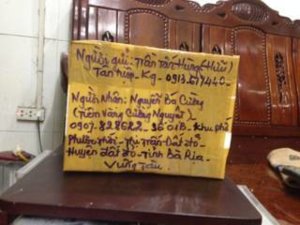 Người gửi: Trần Tấn Hùng (Hiếu)
Tân Hiệp - Kg - 0913.517440
Người Nhận: Nguyễn Bá Cường
(Tiệm Vàng Cường Nguyệt)
0907.828622 - Khu phố
Phước Thới - Thị Trấn Đất Đỏ
Huyện đất đỏ - Tỉnh Bà Rịa
Vũng Tàu